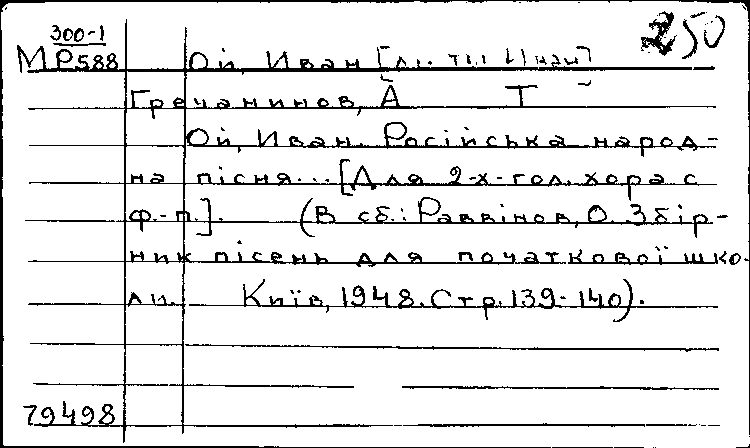 300-1
250
МР588 Ой, Иван [ли ты Иван]
Гречанинов, А Т
Ой, Иван. Російська народ-
на пісня... [Для 2-х-гол. хора с
ф.-п.]. (В сб.: Раввінов, О. Збір-
ник пісень для початкової шко-
ли. Київ, 1948. Стр. 139-140).
79498